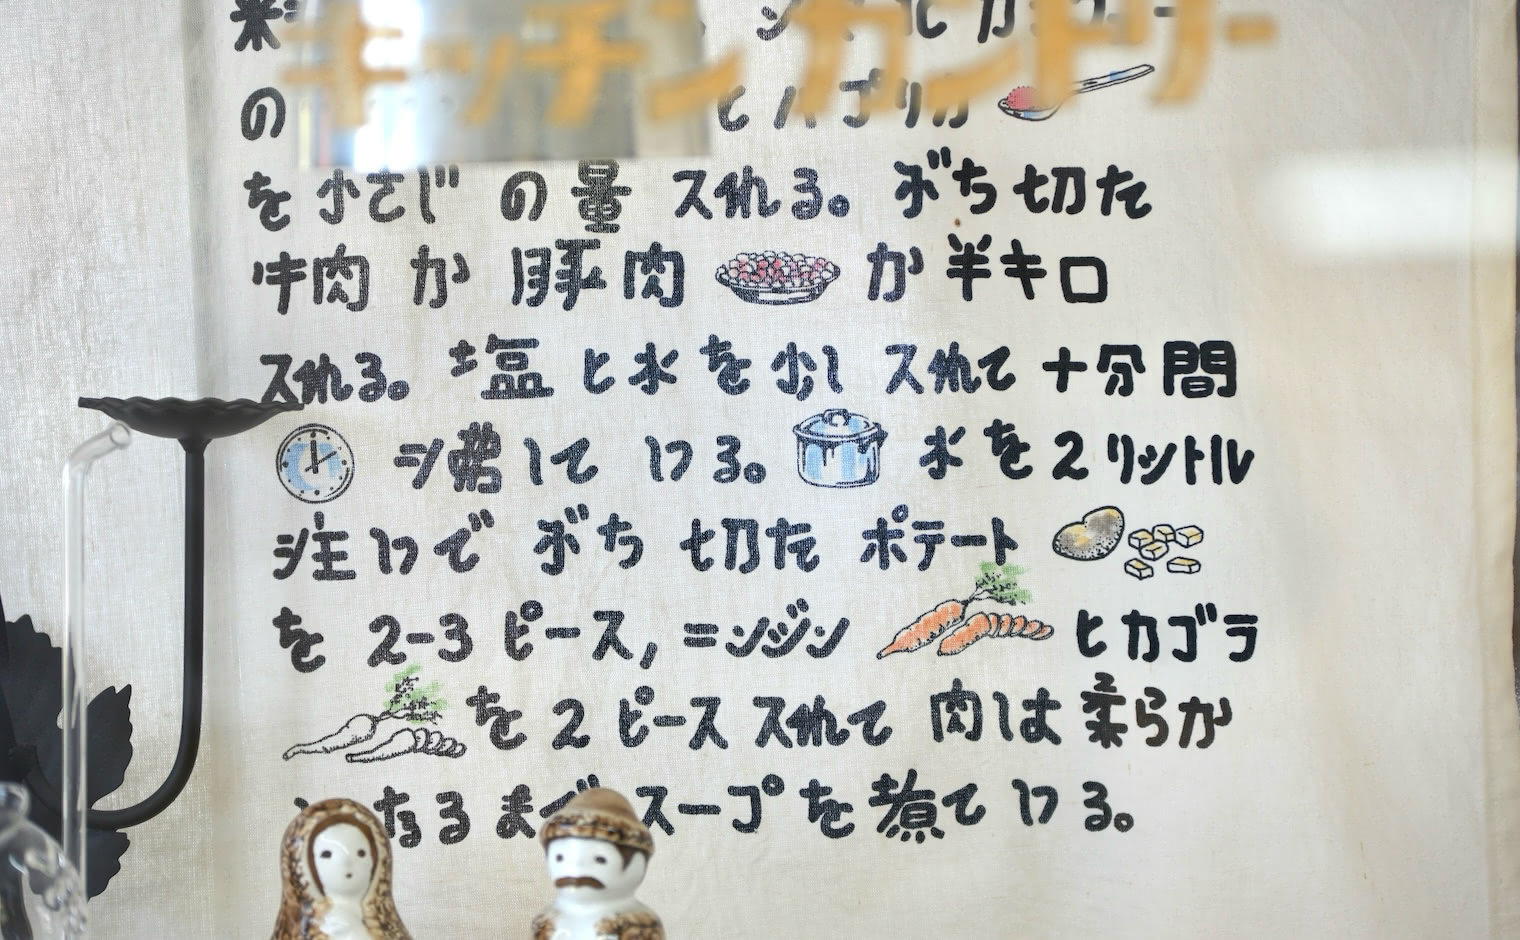 キッチンカントリー
の
を 小さじ の 量 入れる。 ぶち切た
牛肉 か 豚肉 か 半キロ
入れる。 塩 と 水 を 少し 入れて 十分間
沸して いる。 水 を 2 リットル
注いで ぶち 切た ポテート
を 2-3 ピース, ニンジン ヒカゴラ
を 2 ピース 入れて 肉は 柔らか
なるまで スープ を 煮て いる。